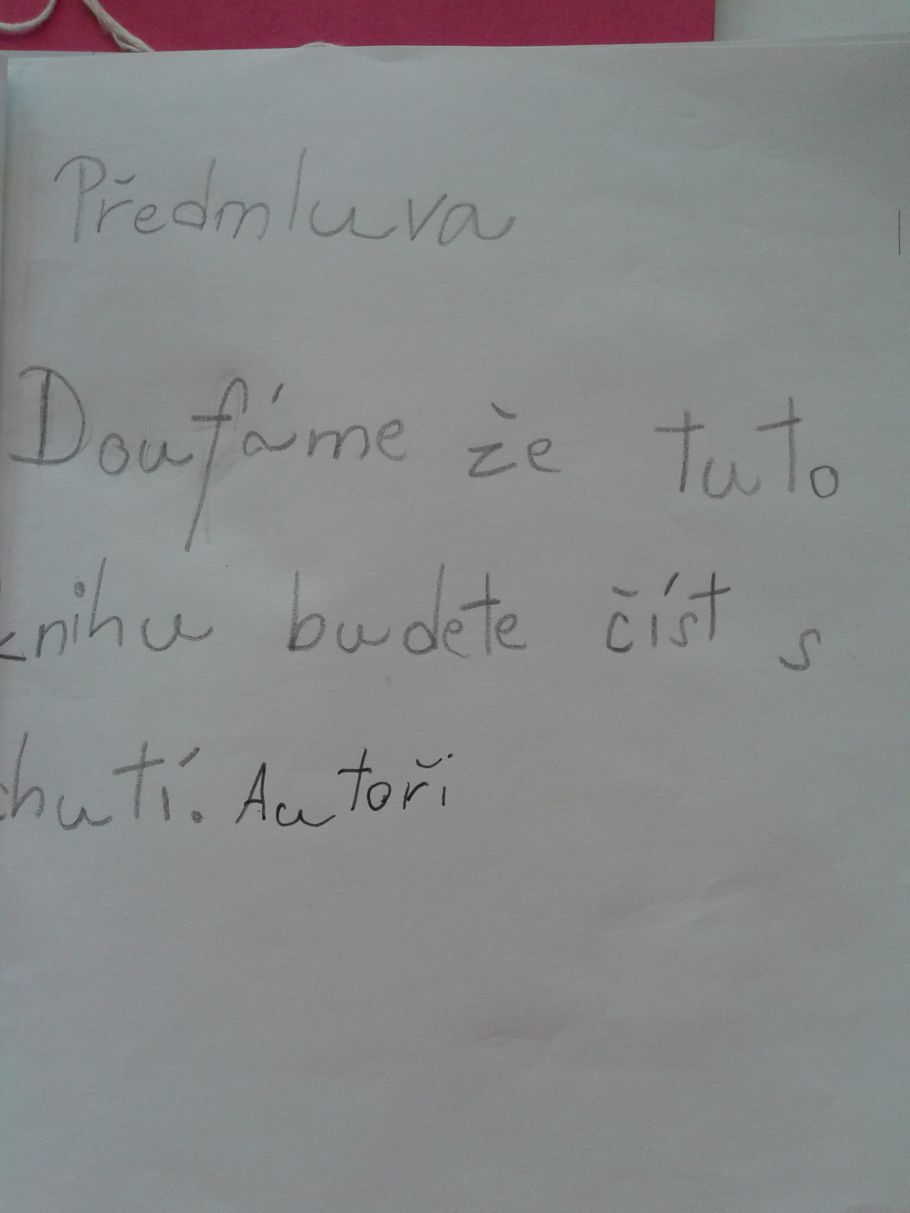 Předmluva
Doufáme že tuto
knihu budete číst s
chutí. Autoři